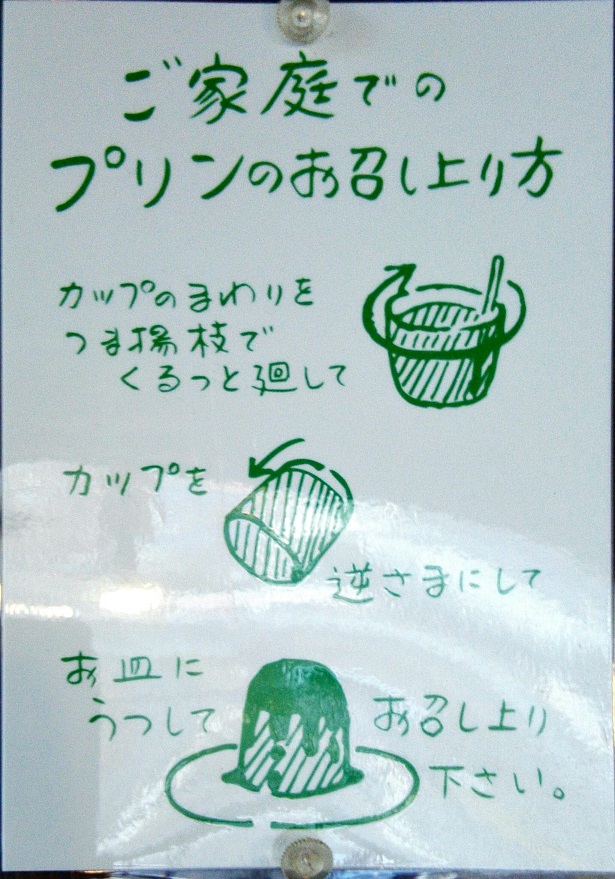 ご家庭での
プリンのお召し上り方
カップのまわりを
つま揚枝で
くるっと廻して
カップを
逆さまにして
お皿に
うつして
お召し上り
下さい。